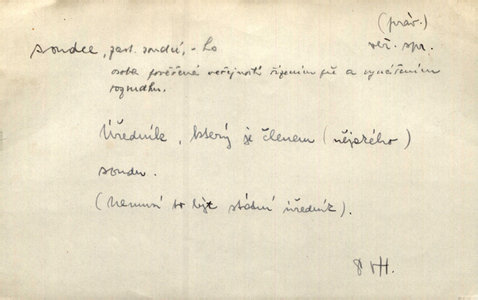 (práv.)
soudce, zast. soudčí, -ho veř. spr.
osoba pověřená veřejností řízením pře a vynášením
rozsudku.
Úředník, který je členem (nějakého)
soudu.
(Nemusí to být státní úředník).